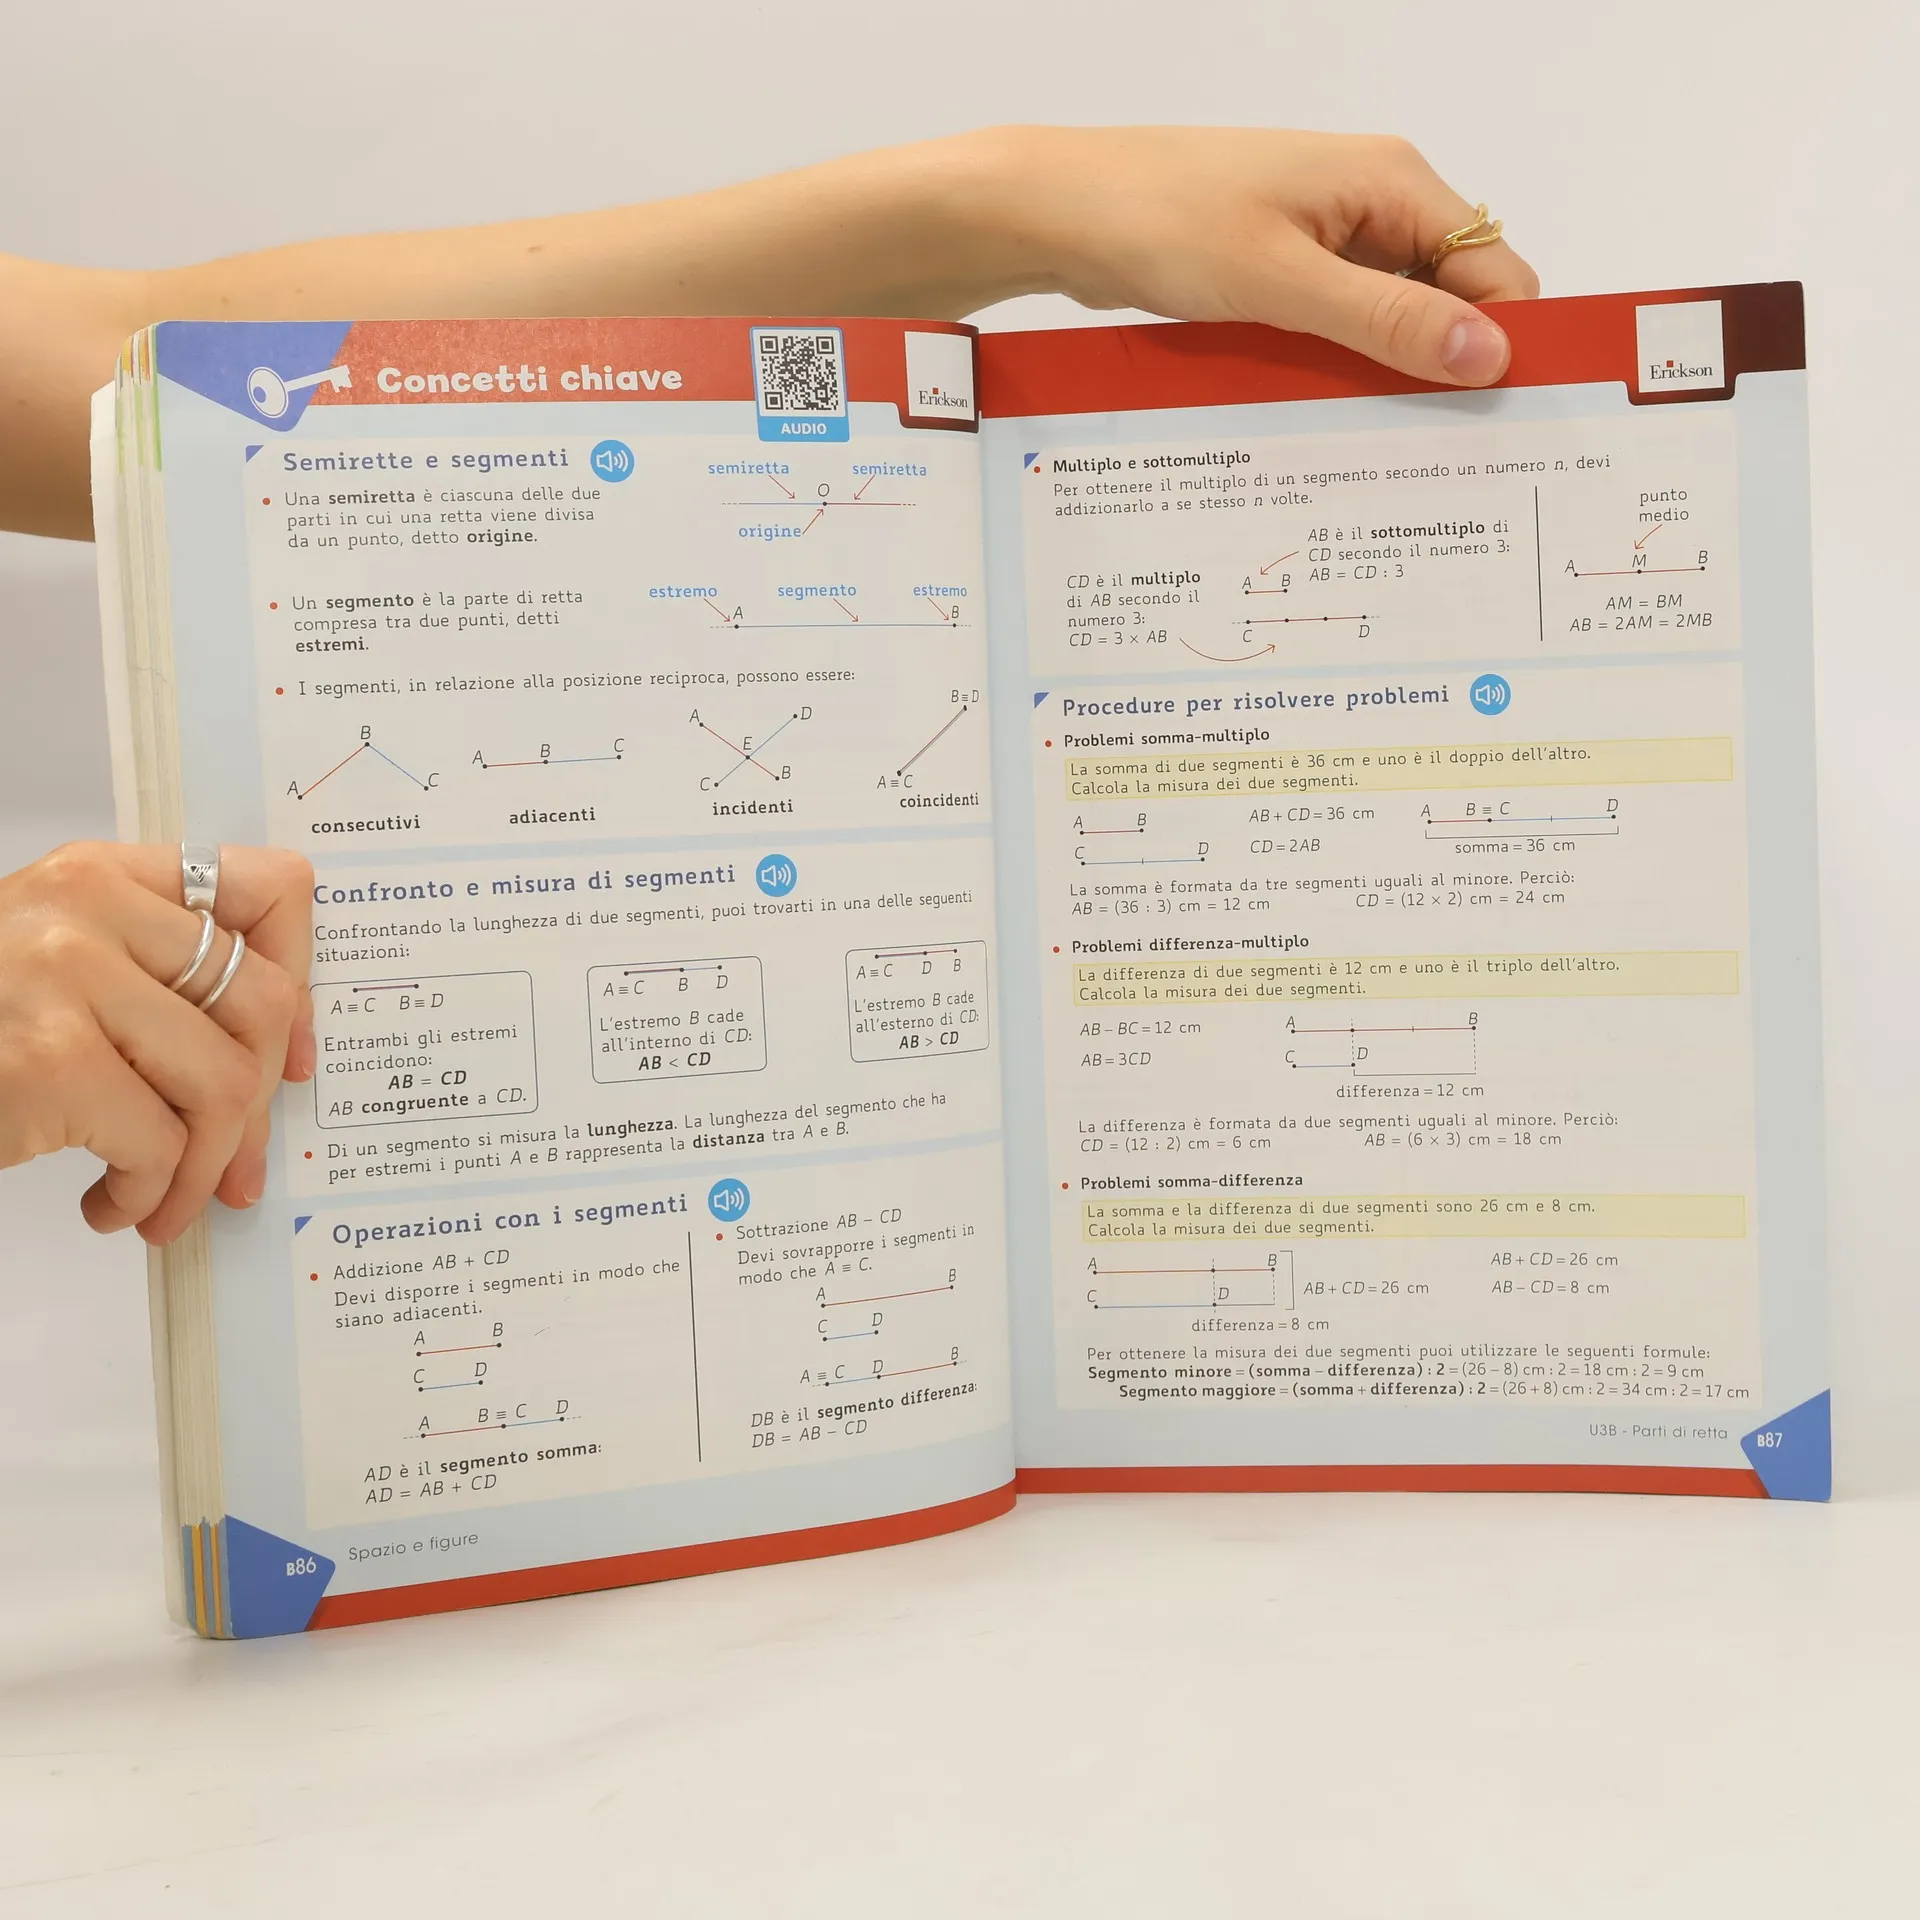 Concetti chiave
AUDIO
Erickson
Semirette e segmenti
Una semiretta è ciascuna delle due
parti in cui una retta viene divisa
da un punto, detto origine.
semiretta semiretta
O
origine
Un segmento è la parte di retta
compresa tra due punti, detti
estremi.
estremo segmento estremo
A B
I segmenti, in relazione alla posizione reciproca, possono essere:
B
A C
consecutivi
A B C
adiacenti
A D
E
C B
incidenti
B ≡ D
A ≡ C
coincidenti
Confronto e misura di segmenti
Confrontando la lunghezza di due segmenti, puoi trovarti in una delle seguenti
situazioni:
A ≡ C B ≡ D
Entrambi gli estremi
coincidono:
AB = CD
AB congruente a CD.
A ≡ C B D
L'estremo B cade
all'interno di CD:
AB < CD
A ≡ C D B
L'estremo B cade
all'esterno di CD:
AB > CD
Di un segmento si misura la lunghezza. La lunghezza del segmento che ha
per estremi i punti A e B rappresenta la distanza tra A e B.
Operazioni con i segmenti
Addizione AB + CD
Devi disporre i segmenti in modo che
siano adiacenti.
A B
C D
A B ≡ C D
AD è il segmento somma:
AD = AB + CD
Sottrazione AB – CD
Devi sovrapporre i segmenti in
modo che A ≡ C.
A B
C D
A ≡ C D B
DB è il segmento differenza:
DB = AB – CD
B86 Spazio e figure
Erickson
Multiplo e sottomultiplo
Per ottenere il multiplo di un segmento secondo un numero n, devi
addizionarlo a se stesso n volte.
CD è il multiplo
di AB secondo il
numero 3:
CD = 3 × AB
AB è il sottomultiplo di
CD secondo il numero 3:
AB = CD : 3
A B
C D
punto
medio
A M B
AM = BM
AB = 2AM = 2MB
Procedure per risolvere problemi
Problemi somma-multiplo
La somma di due segmenti è 36 cm e uno è il doppio dell'altro.
Calcola la misura dei due segmenti.
A B
C D
AB + CD = 36 cm
CD = 2AB
A B ≡ C D
somma = 36 cm
La somma è formata da tre segmenti uguali al minore. Perciò:
AB = (36 : 3) cm = 12 cm CD = (12 × 2) cm = 24 cm
Problemi differenza-multiplo
La differenza di due segmenti è 12 cm e uno è il triplo dell'altro.
Calcola la misura dei due segmenti.
AB – BC = 12 cm
AB = 3CD
A B
C D
differenza = 12 cm
La differenza è formata da due segmenti uguali al minore. Perciò:
CD = (12 : 2) cm = 6 cm AB = (6 × 3) cm = 18 cm
Problemi somma-differenza
La somma e la differenza di due segmenti sono 26 cm e 8 cm.
Calcola la misura dei due segmenti.
A B
C D
AB + CD = 26 cm
differenza = 8 cm
AB + CD = 26 cm
AB – CD = 8 cm
Per ottenere la misura dei due segmenti puoi utilizzare le seguenti formule:
Segmento minore = (somma – differenza) : 2 = (26 – 8) cm : 2 = 18 cm : 2 = 9 cm
Segmento maggiore = (somma + differenza) : 2 = (26 + 8) cm : 2 = 34 cm : 2 = 17 cm
U3B - Parti di retta B87